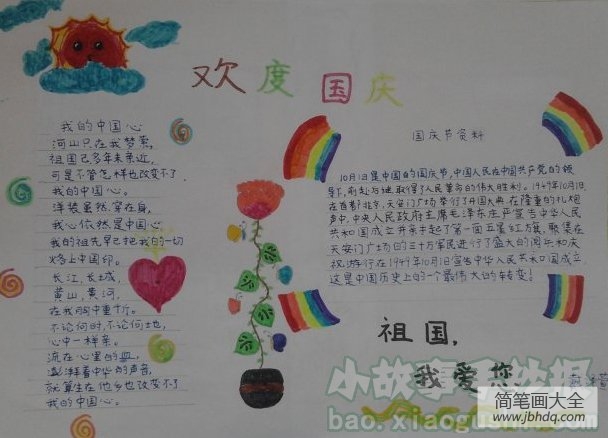 欢度国庆
我的中国心
河山只在我梦萦,
祖国已多年未亲近,
可是不管怎样也改变不了,
我的中国心。
洋装虽然穿在身,
我心依然是中国心
我的祖先早已把我的一切
烙上中国印。
长江,长城,
黄山,黄河,
在我胸中重千斤。
不论何时,不论何地,
心中一样亲。
流在心里的血,
澎湃着中华的声音,
就算生在他乡也改变不了
我的中国心。
国庆节资料
10月1日是中国的国庆节,中国人民在中国共产党的领
导下,前赴后继取得了人民革命的伟大胜利。1949年10月1日,
在首都北京,天安门广场举行了开国大典,在隆重的礼炮
声中,中央人民政府主席毛泽东庄严宣告中华人民
共和国成立并亲手起了第一面五星红旗,聚集在
天安门广场的三十万军民进行了盛大的阅兵和庆
祝游行在1949年10月1日宣告中华人民共和国成立,
这是中国历史上的一个最伟大的转变!
祖国,
我爱您
小故事手抄报
bao.xiaogushi
简笔画大全
www.jbhdq.com